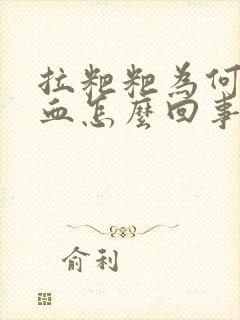 拉粑粑為何
血怎麼回事
俞利